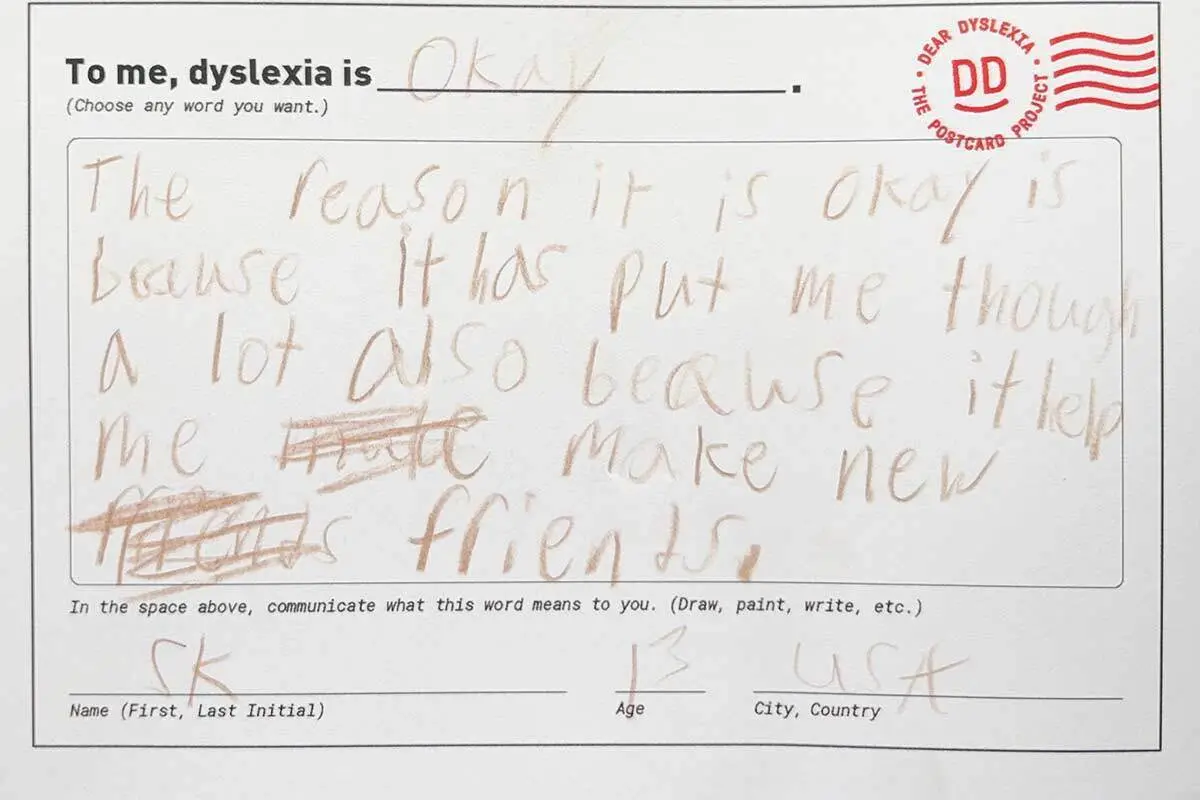 To me, dyslexia is Okay.
(Choose any word you want.)
DEAR DYSLEXIA · THE POSTCARD PROJECT ·
DD
The reason it is okay is
beacuse it has put me though
a lot also beacuse it help
me make new
friends.
In the space above, communicate what this word means to you. (Draw, paint, write, etc.)
SK 13 USA
Name (First, Last Initial) Age City, Country